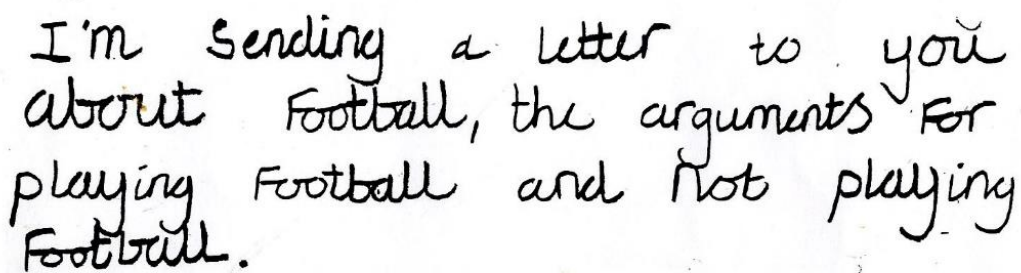 I'm Sending a letter to you
about Football, the arguments For
playing Football and not playing
Football.